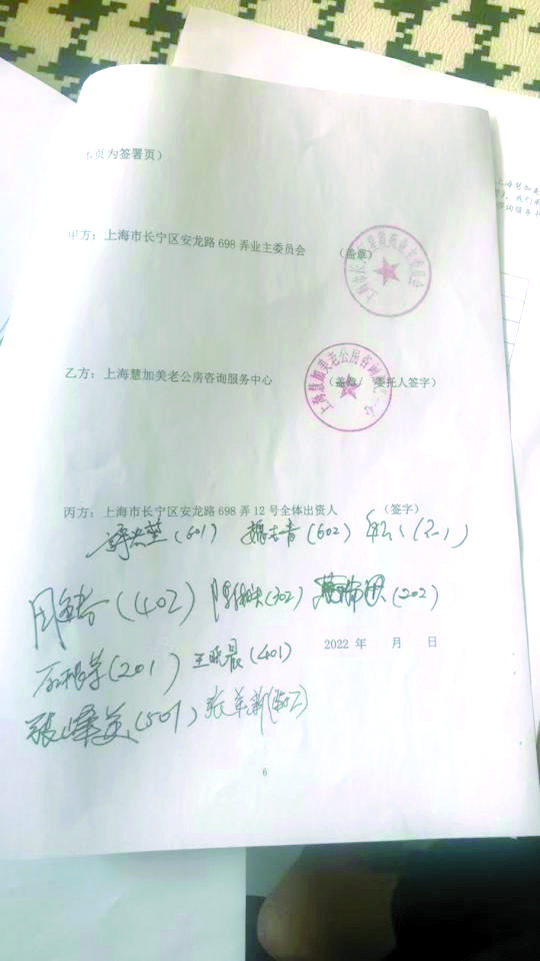 页为签署页）
甲方：上海市长宁区安龙路 698 弄业主委员会 （盖章）
乙方：上海慧加美老公房咨询服务中心 （盖章/ 委托人签字）
上海慧加美老公房咨询服务中心
丙方：上海市长宁区安龙路 698 弄 12 号全体出资人 （签字）
(601) 魏志青 (602)
周 (402) (302) (202)
(201) 王晓晨 (401)
2022 年 月 日
张 英 (501) 张革新 (502)
6